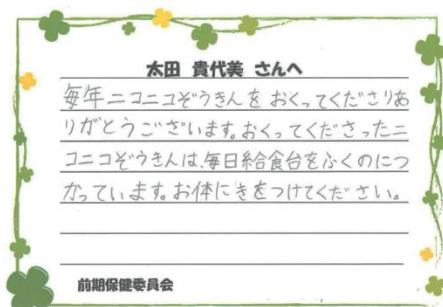 太田 貴代美 さんへ
毎年ニコニコぞうきんを おくってくださりあ
りがとうございます。おくってくださったニ
コニコぞうきんは、毎日給食台をふくのにつ
かっています。お体にきをつけてください。
前期保健委員会